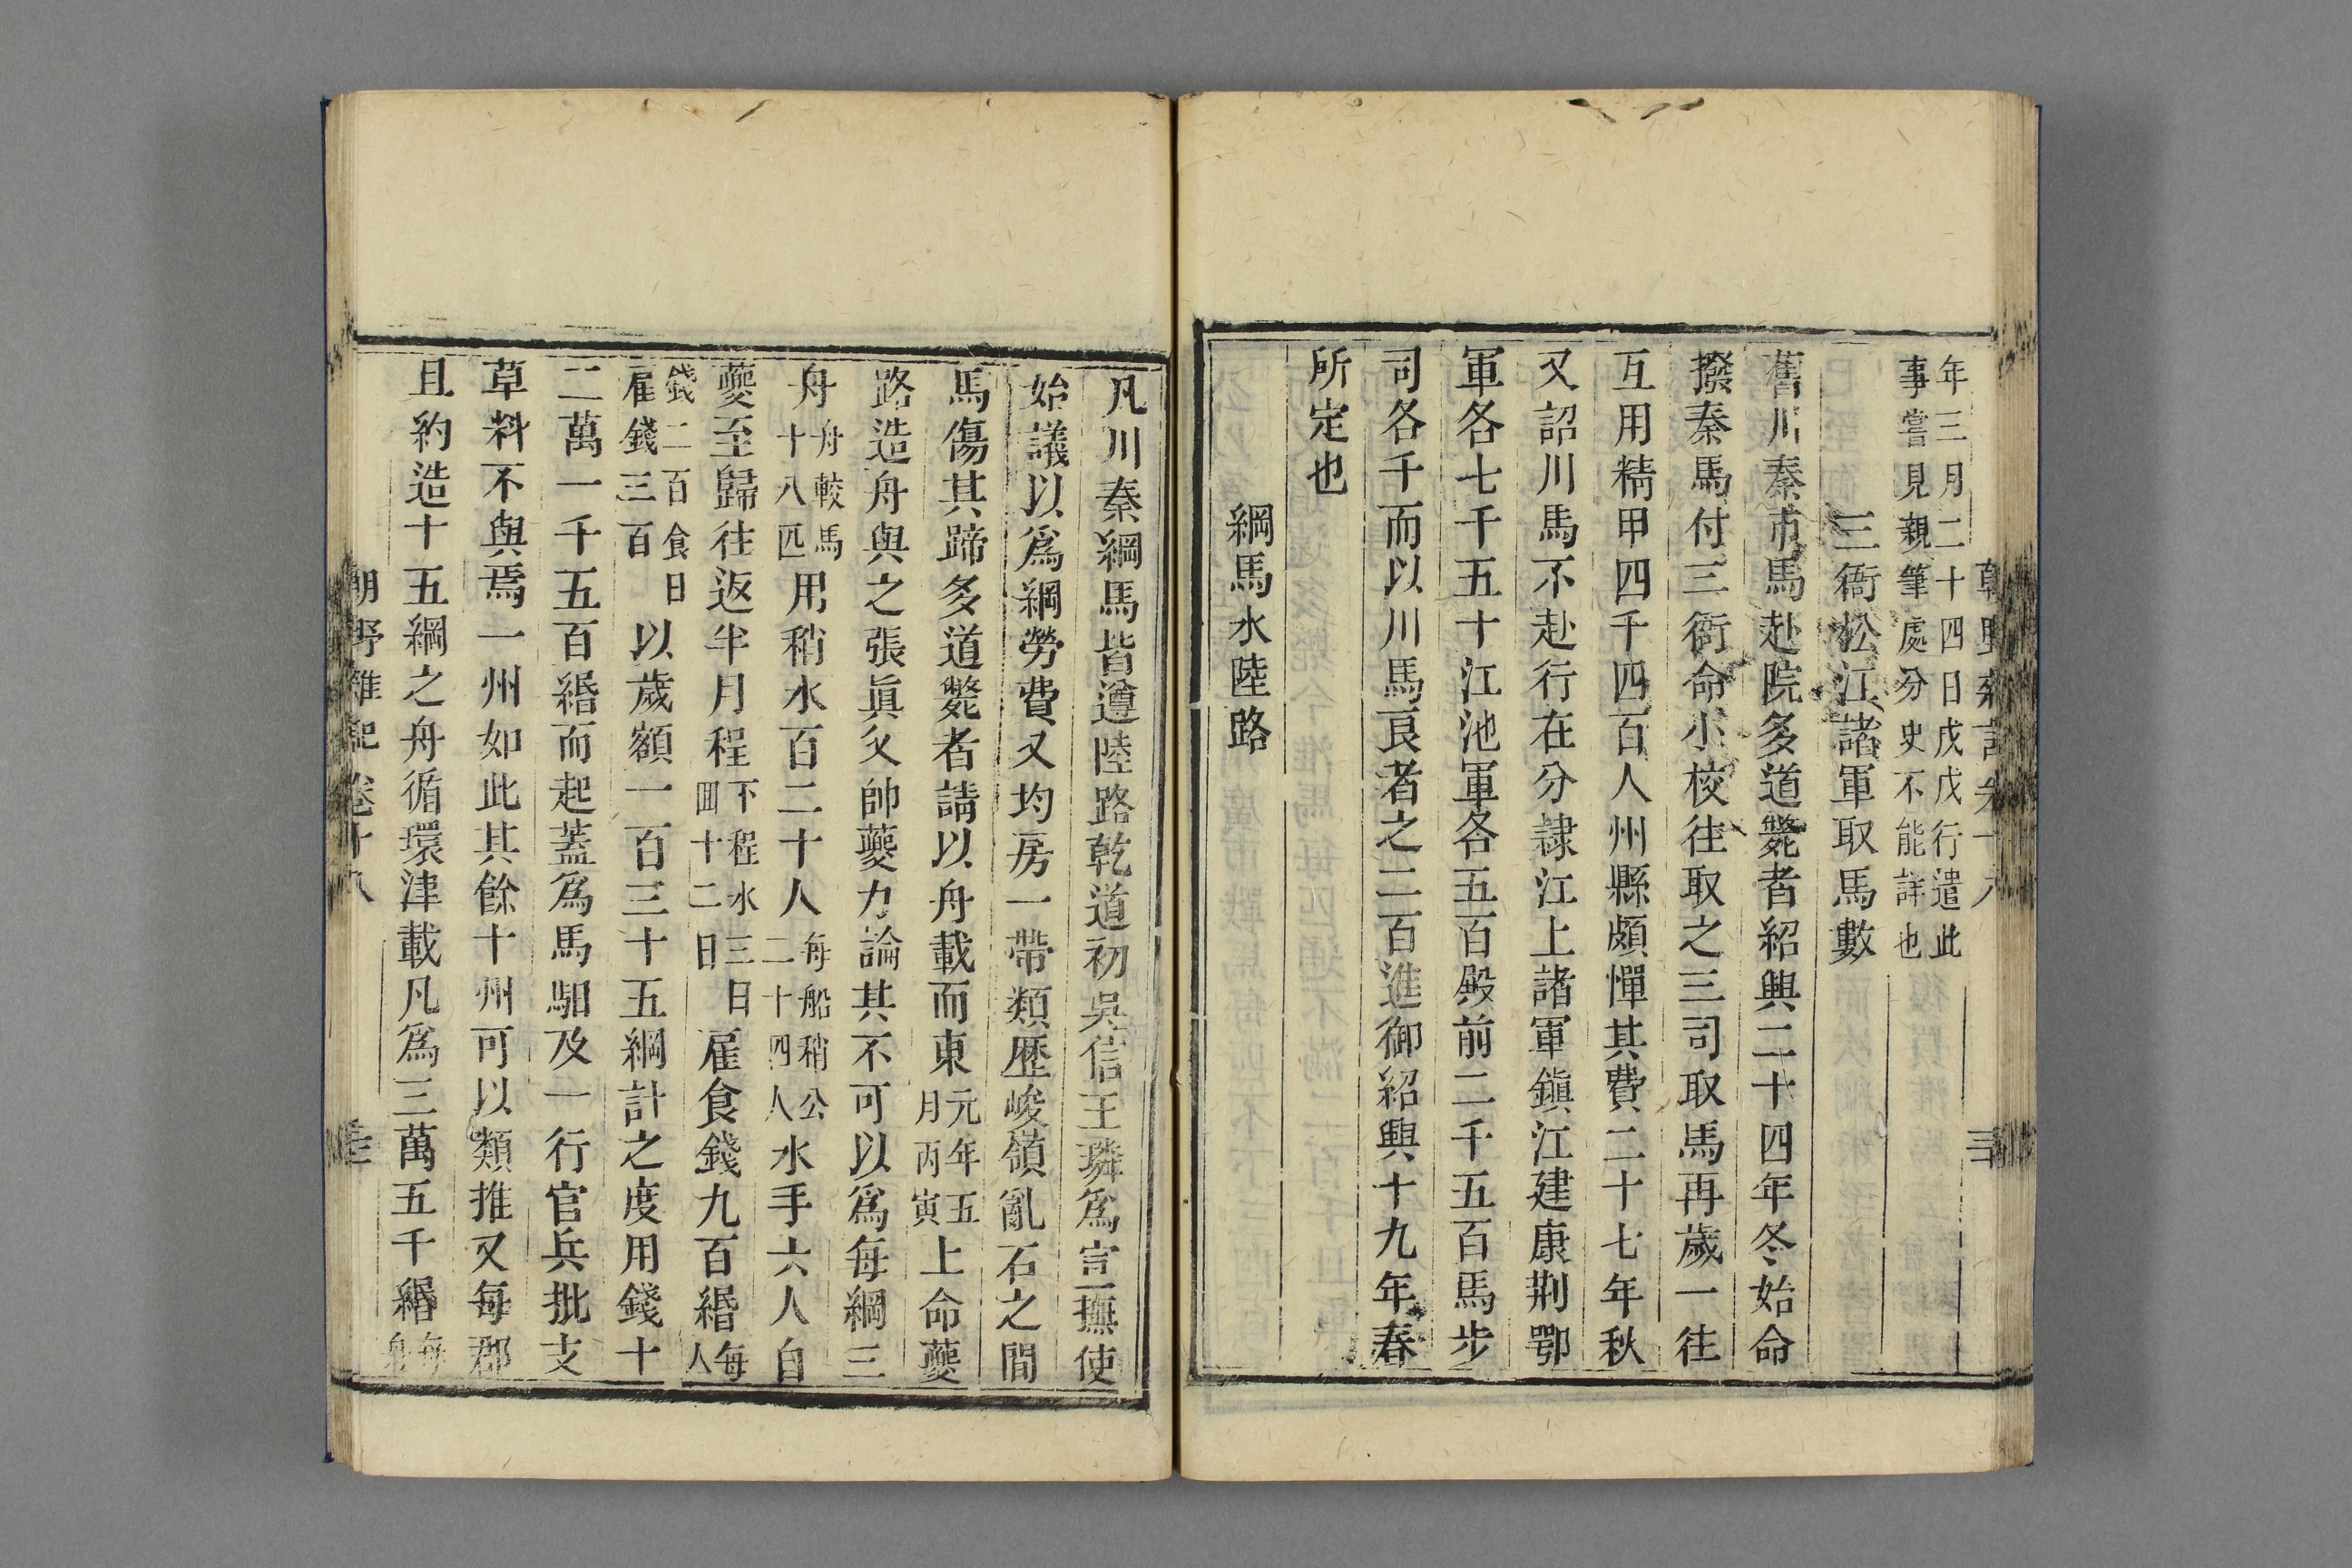 年三月二十四日戊戌行遣此
事嘗見親筆處分史不能詳也
三衙松江諸軍取馬數
舊川秦市馬赴院多道斃者紹興二十四年冬始命
撥秦馬付三衙命小校往取之三司取馬再歲一往
互用精甲四千四百人州縣頗憚其費二十七年秋
又詔川馬不赴行在分隷江上諸軍鎭江建康荆鄂
軍各七千五十江池軍各五百殿前二千五百馬步
司各千而以川馬良者之二百進御紹興十九年春
所定也
綱馬水陸路
凡川秦綱馬皆遵陸路乾道初吳信王璘爲宣撫使
始議以爲綱勞費又均房一帶類歴峻嶺亂石之間
馬傷其蹄多道斃者請以舟載而東元年五月丙寅上命夔
路造舟與之張眞父帥夔力論其不可以爲每綱三
舟舟較馬十八匹用稍水百二十人每船稍公二十四人水手六人自
夔至歸往返半月程下程水三日囬十二日雇食錢九百緡每人
錢二百食日雇錢三百以歲額一百三十五綱計之度用錢十
二萬一千五百緡而起蓋爲馬駔及一行官兵批支
草料不與焉一州如此其餘十州可以類推又每郡
且約造十五綱之舟循環津載凡爲三萬五千緡每舟
朝野雜記卷十八